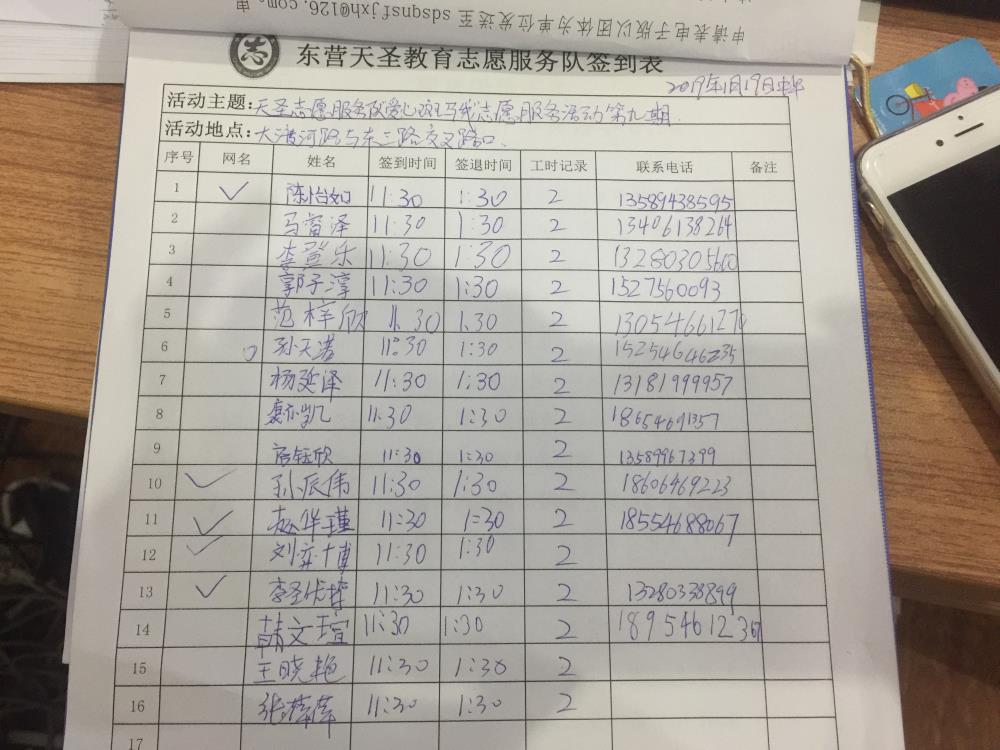 申请表电子版以团体为单位发送至 sdsqnsfjxh@126.com。
志
东营天圣教育志愿服务队签到表
2019年1月19日
活动主题:天圣志愿服务队爱心斑马线志愿服务活动第九期.
活动地点:大渡河路与东三路交叉路口.
序号 网名 姓名 签到时间 签退时间 工时记录 联系电话 备注
1 ✓ 陈怡如 11:30 1:30 2 13589438595
2 马睿泽 11:30 1:30 2 13406138264
3 李登乐 11:30 1:30 2 13280305600
4 郭子淳 11:30 1:30 2 1527560093
5 范梓欣 11:30 1:30 2
6 孙天诺 11:30 1:30 2 15254646235
7 杨延泽 11:30 1:30 2 13181999957
8 11:30 1:30 2 18654691357
9 11:30 1:30 2 13589967399
10 ✓ 孙辰伟 11:30 1:30 2 18606469223
11 ✓ 赵华瑾 11:30 1:30 2 18554688067
12 ✓ 刘弈博 11:30 1:30 2
13 ✓ 11:30 1:30 2 13280338899
14 韩文瑄 11:30 1:30 2
15 王晓艳 11:30 1:30 2
16 11:30 1:30 2
17